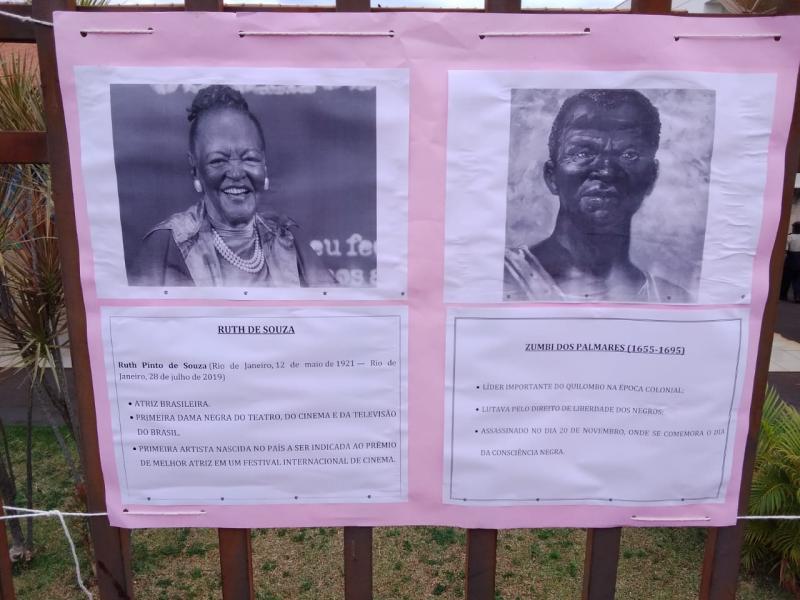 eu fe
os a
RUTH DE SOUZA
Ruth Pinto de Souza (Rio de Janeiro, 12 de maio de 1921 — Rio de
Janeiro, 28 de julho de 2019)
• ATRIZ BRASILEIRA.
• PRIMEIRA DAMA NEGRA DO TEATRO, DO CINEMA E DA TELEVISÃO
DO BRASIL.
• PRIMEIRA ARTISTA NASCIDA NO PAÍS A SER INDICADA AO PRÊMIO
DE MELHOR ATRIZ EM UM FESTIVAL INTERNACIONAL DE CINEMA.
ZUMBI DOS PALMARES (1655-1695)
• LÍDER IMPORTANTE DO QUILOMBO NA ÉPOCA COLONIAL;
• LUTAVA PELO DIREITO DE LIBERDADE DOS NEGROS;
• ASSASSINADO NO DIA 20 DE NOVEMBRO, ONDE SE COMEMORA O DIA
DA CONSCIÊNCIA NEGRA.